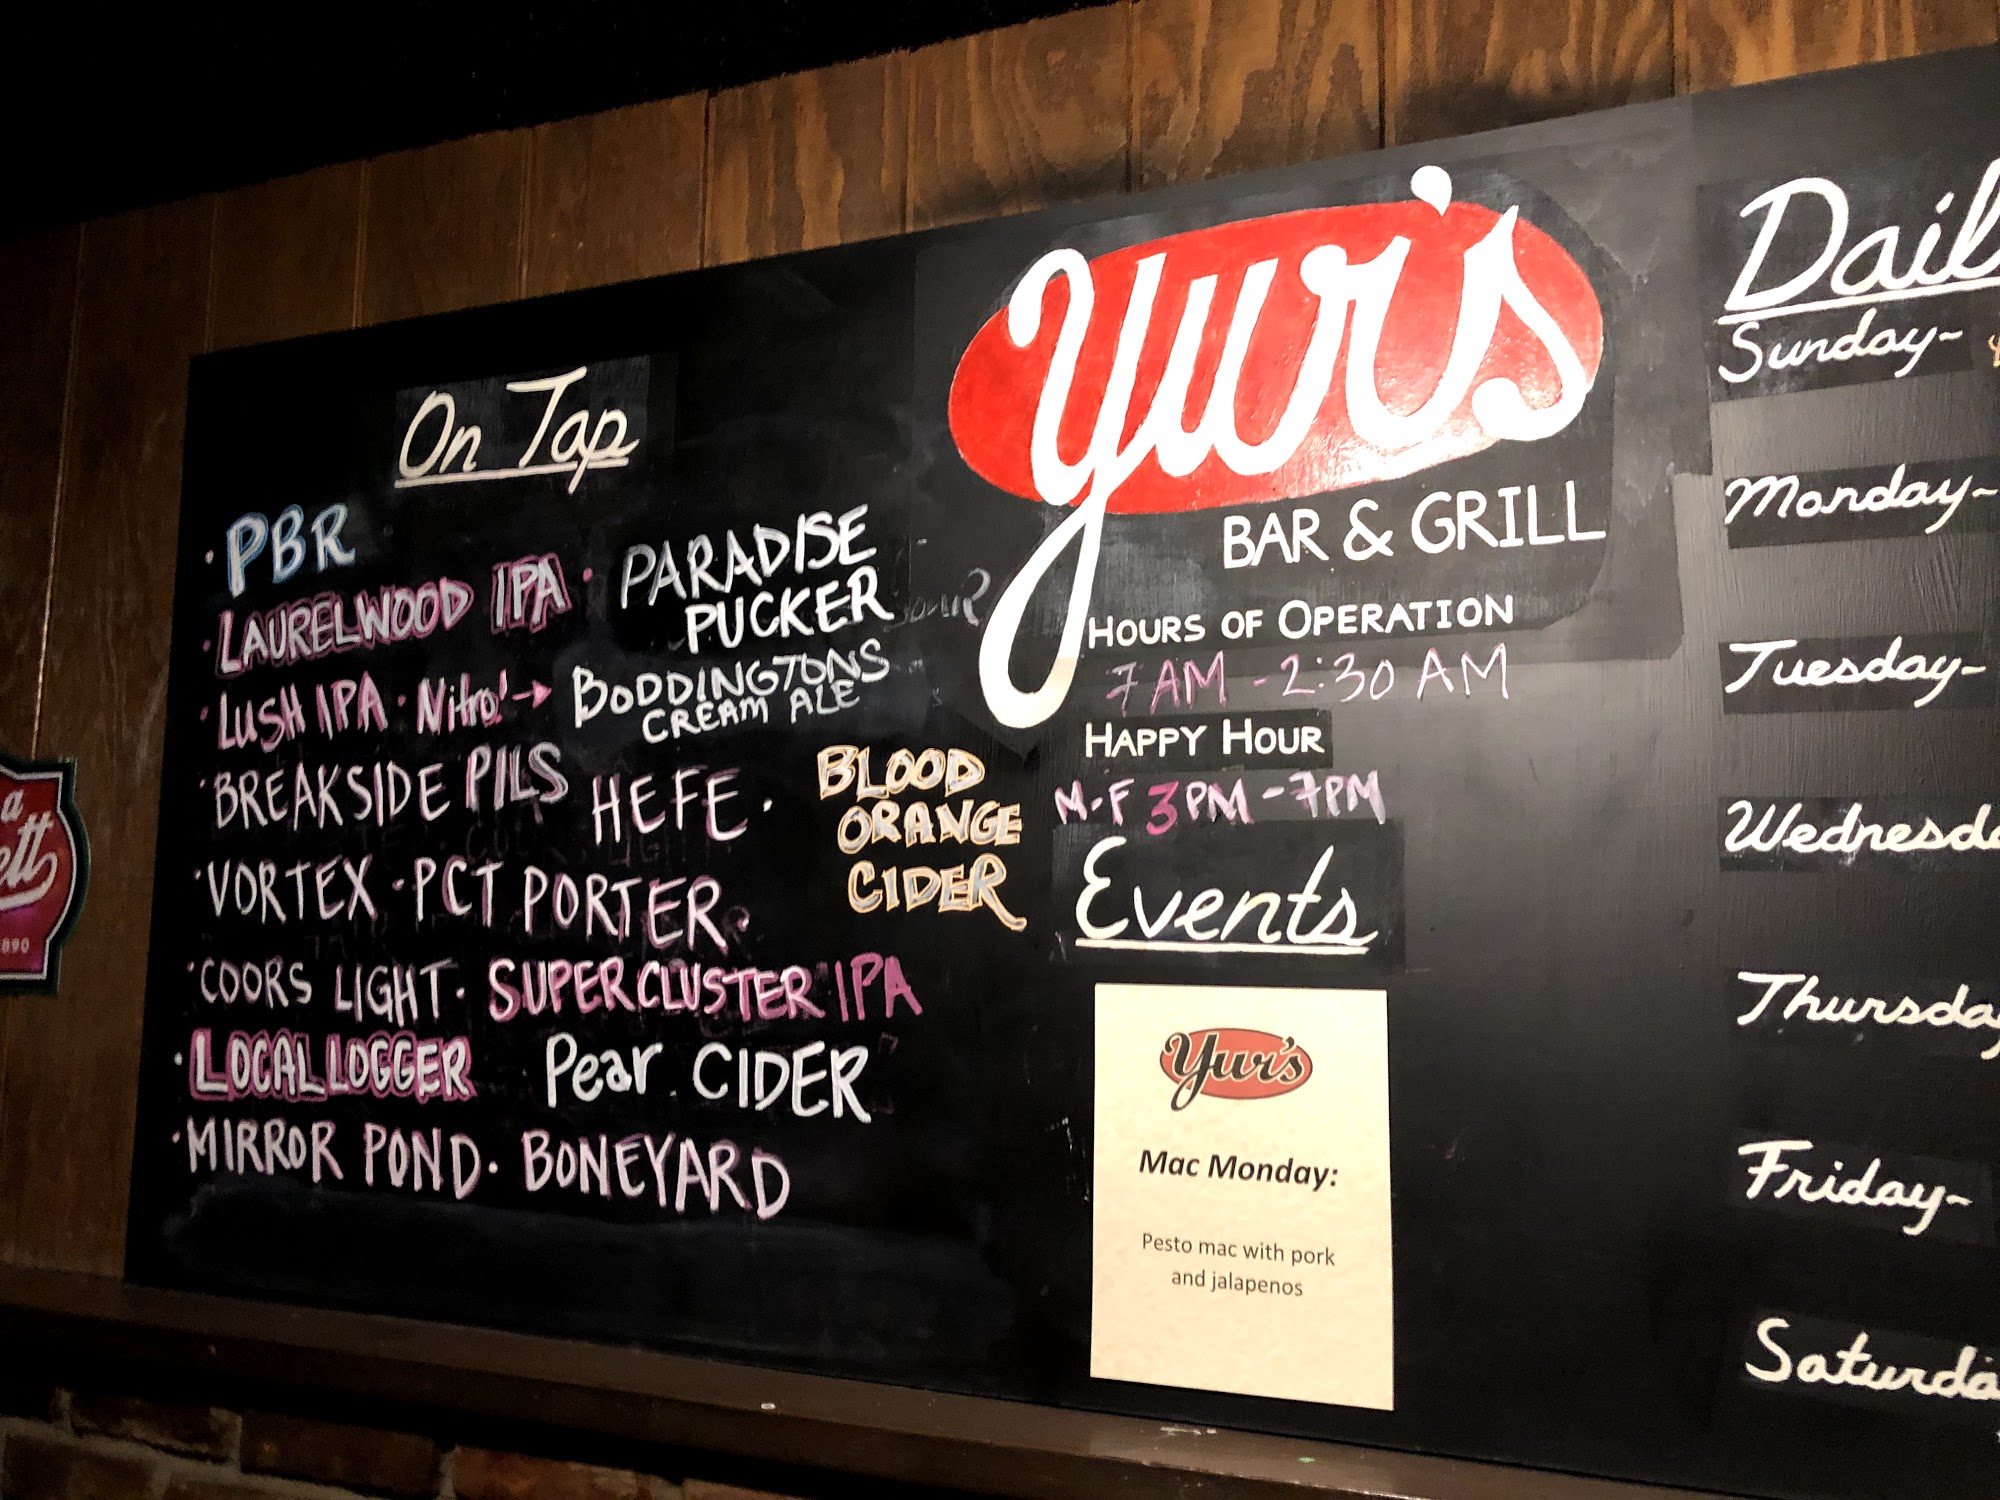 On Tap
· PBR
· LAURELWOOD IPA · PARADISE
PUCKER
· LUSH IPA · Nitro! → BODDINGTONS
CREAM ALE
· BREAKSIDE PILS HEFE ·
· VORTEX · PCT PORTER ·
BLOOD
ORANGE
CIDER
· COORS LIGHT · SUPERCLUSTER IPA
· LOCAL LOGGER Pear CIDER
· MIRROR POND · BONEYARD
Yur's
BAR & GRILL
HOURS OF OPERATION
7 AM - 2:30 AM
HAPPY HOUR
M-F 3PM - 7PM
Events
Yur's
Mac Monday:
Pesto mac with pork
and jalapenos
Dail
Sunday~
Monday~
Tuesday~
Wednesda
Thursday
Friday~
Saturda
a
ett
890